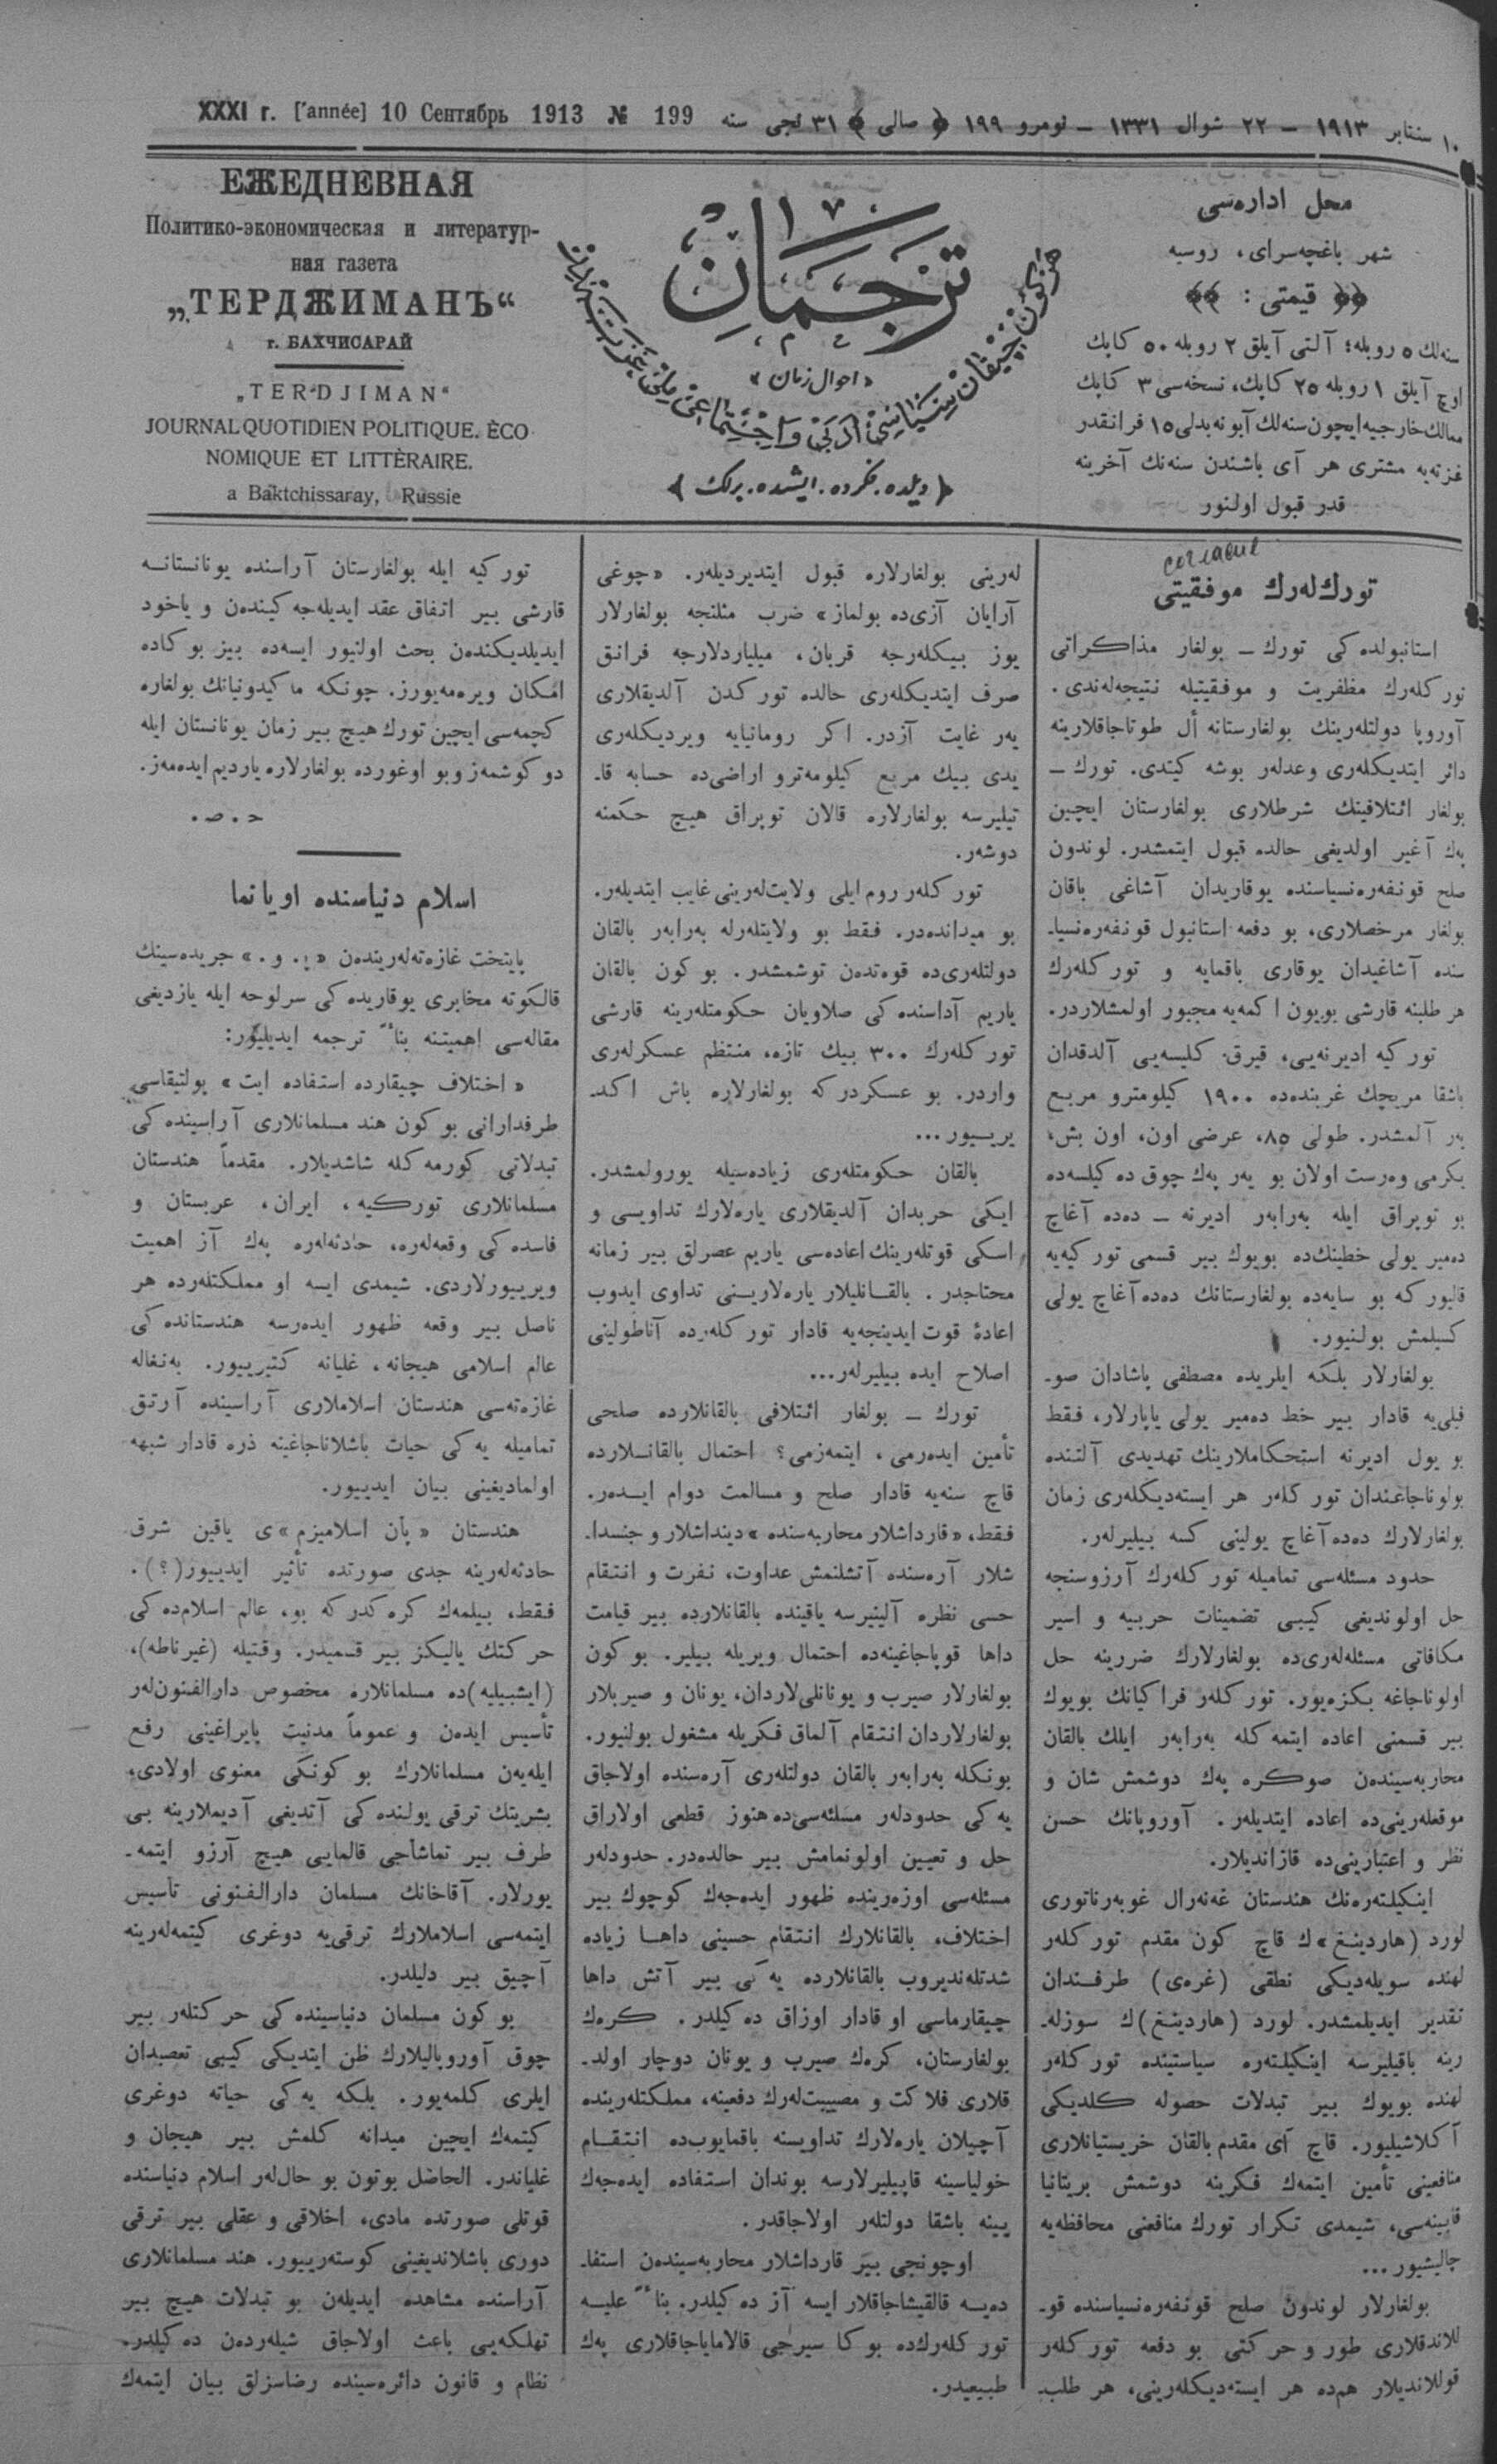 XXXI г. [année] 10 Сентябрь 1913 № 199
۱۰ سنتابر ۱۹۱۳ – ۲۲ شوال ۱۳۳۱ – نومرو ۱۹۹ ﴿ صالی ﴾ ۳۱ نجی سنه
ЕЖЕДНЕВНАЯ
Политико-экономическая и литератур-
ная газета
„ТЕРДЖИМАНЪ“
г. БАХЧИСАРАЙ
„TERDJIMAN“
JOURNAL QUOTIDIEN POLITIQUE. ÈCO
NOMIQUE ET LITTÈRAIRE.
a Baktchissaray, Russie
ترجمان
«احوال زمان»
﴿ دیلده. فكرده. ایشده. برلك ﴾
محل اداره‌سی
شهر باغچه‌سرای، روسیه
﴿﴿ قیمتی : ﴾﴾
سنه‌لك ۵ روبله؛ آلتی آیلق ۲ روبله ۵۰ كاپك
اوچ آیلق ۱ روبله ۲۵ كاپك، نسخه‌سی ۳ كاپك
ممالك خارجیه ایچون سنه‌لك آبونه بدلی ۱۵ فرانقدر
غزته‌یه مشتری هر آی باشندن سنه‌نك آخرینه
قدر قبول اولنور
согласие
تورك‌لەرك موفقیتی
استانبولده كی تورك – بولغار مذاكراتی
توركلەرك مظفریت و موفقیتیله نتیجه‌لەندی.
آوروپا دولتلەرینك بولغارستانه أل طوتاجاقلارینه
دائر ایتدیكلەری وعدلەر بوشه كیتدی. تورك –
بولغار ائتلافینك شرطلاری بولغارستان ایچین
پەك آغیر اولدیغی حالده قبول ایتمشدر. لوندون
صلح قونفەرەنسیاسنده یوقاریدان آشاغی باقان
بولغار مرخصلاری، بو دفعه استانبول قونفەرەنسیا-
سنده آشاغیدان یوقاری باقمایه و توركلەرك
هر طلبنه قارشی بویون اكمەیه مجبور اولمشلاردر.
توركیه ادیرنەیی، قیرق كلیسەیی آلدقدان
باشقا مریچك غربنده‌ده ۱۹۰۰ كیلومترو مربع
یەر آلمشدر. طولی ۸۵، عرضی اون، اون بش،
یكرمی وەرست اولان بو یەر پەك چوق ده كیلسەده
بو توپراق ایله بەرابەر ادیرنه – دەده آغاچ
دەمیر یولی خطینك‌ده بویوك بیر قسمی توركیەیه
قالیور كه بو سایەده بولغارستانك دەده آغاچ یولی
كسیلمش بولنیور.
بولغارلار بلكه ایلریده مصطفی پاشادان صو-
فیلی‌یه قادار بیر خط دەمیر یولی یاپارلار، فقط
بو یول ادیرنه استحكاملارینك تهدیدی آلتنده
بولوناجاغندان توركلەر هر ایستەدیكلەری زمان
بولغارلارك دەده آغاچ یولینی كسه بیلیرلەر.
حدود مسئله‌سی تمامیله توركلەرك آرزوسنجه
حل اولوندیغی كیبی تضمینات حربیه و اسیر
مكافاتی مسئله‌لەری‌ده بولغارلارك ضررینه حل
اولوناجاغه بكزەیور. توركلەر فراكیانك بویوك
بیر قسمنی اعاده ایتمه كله بەرابەر ایلك بالقان
محاربه‌سیندەن صوكره پەك دوشمش شان و
موقعلەرینی‌ده اعاده ایتدیلەر. آوروپانك حسن
نظر و اعتبارینی‌ده قازاندیلار.
اینكیلتەرەنك هندستان غەنەرال غوبەرناتوری
لورد (هاردینغ)ك قاچ كون مقدم توركلەر
لهنده سویلەدیكی نطقی (غرەی) طرفندان
تقدیر ایدیلمشدر. لورد (هاردینغ)ك سوزلە-
رینه باقیلیرسه اینكیلتەره سیاستینده توركلەر
لهنده بویوك بیر تبدلات حصوله كلدیكی
آكلاشیلیور. قاچ آی مقدم بالقان خریستیانلاری
منافعینی تأمین ایتمەك فكرینه دوشمش بریتانیا
قابینەسی، شیمدی تكرار تورك منافعنی محافظەیه
چالیشیور...
بولغارلار لوندون صلح قونفەرەنسیاسنده قو-
للاندقلاری طور و حركتی بو دفعه توركلەر
قوللاندیلار هم‌ده هر ایستەدیكلەرینی، هر طلب-
لەرینی بولغارلاره قبول ایتدیردیلەر. «چوغی
آرایان آزی‌ده بولماز» ضرب مثلنجه بولغارلار
یوز بیكلەرجه قربان، میلیاردلارجه فرانق
صرف ایتدیكلەری حالده توركدن آلدیقلاری
یەر غایت آزدر. اكر رومانیایه ویردیكلەری
یدی بیك مربع كیلومەترو اراضی‌ده حسابه قا-
تیلیرسه بولغارلاره قالان توپراق هیچ حكمنه
دوشەر.
توركلەر روم ایلی ولایت‌لەرینی غایب ایتدیلەر.
بو میدانده‌در. فقط بو ولایتلەرله بەرابەر بالقان
دولتلەری‌ده قوەتدەن توشمشدر. بو كون بالقان
یاریم آداسنده كی صلاویان حكومتلەرینه قارشی
توركلەرك ۳۰۰ بیك تازه، منتظم عسكرلەری
واردر. بو عسكردر كه بولغارلاره باش اكد-
یریـیور...
بالقان حكومتلەری زیاده‌سیله یورولمشدر.
ایكی حربدان آلدیقلاری یارەلارك تداویسی و
اسكی قوتلەرینك اعادەسی یاریم عصرلق بیر زمانه
محتاجدر. بالقـانلیلار یارەلاریـنی تداوی ایدوب
اعادۀ قوت ایدینجەیه قادار توركلەرده آناطولینی
اصلاح ایده بیلیرلەر...
تورك – بولغار ائتلافی بالقانلارده صلحی
تأمین ایدەرمی، ایتمەزمی؟ احتمال بالقانـلارده
قاچ سنەیه قادار صلح و مسالمت دوام ایـدەر.
فقط، «قارداشلار محاربه‌سنده» دینداشلار و جنسدا-
شلار آرەسنده آتشلنمش عداوت، نفرت و انتقام
حسی نظره آلینیرسه یاقینده بالقانلارده بیر قیامت
داها قوپاجاغینه‌ده احتمال ویریله بیلیر. بو كون
بولغارلار صیرب و یونانلی‌لاردان، یونان و صیربلار
بولغارلاردان انتقام آلماق فكریله مشغول بولنیور.
بونكله بەرابەر بالقان دولتلەری آرەسنده اولاجاق
یه كی حدودلەر مسئله‌سی‌ده هنوز قطعی اولاراق
حل و تعیین اولونمامش بیر حالده‌در. حدودلەر
مسئله‌سی اوزەرینده ظهور ایدەجەك كوچوك بیر
اختلاف، بالقانلارك انتقام حسینی داهـا زیاده
شدتلەندیروب بالقانلارده یه كی بیر آتش داها
چیقارماسی او قادار اوزاق ده كیلدر. كرەك
بولغارستان، كرەك صیرب و یونان دوچار اولد-
قلاری فلاكت و مصیبت‌لەرك دفعینه، مملكتلەرینده
آچیلان یارەلارك تداویسنه باقمایوب‌ده انتقـام
خولیاسینه قاپیلیرلارسه بوندان استفاده ایدەجەك
یینه باشقا دولتلەر اولاجاقدر.
اوچونجی بیر قارداشلار محاربه‌سیندەن استفا-
دەیـه قالقیشاجاقلار ایسه آز ده كیلدر. بناءً علیـه
توركلەرك‌ده بوكا سیرجی قالامایاجاقلاری پەك
طبیعیدر.
توركیه ایله بولغارستان آراسنده یونانستانـه
قارشی بیر اتفاق عقد ایدیلەجه كیندەن و یاخود
ایدیلدیكندەن بحث اولنیور ایسەده بیز بوكاده
امكان ویرەمەیورز. چونكه ماكیدونیانك بولغاره
كچمەسی ایچین تورك هیچ بیر زمان یونانستان ایله
دوكوشمەز و بو اوغورده بولغارلاره یاردیم ایدەمەز.
ح. ص.
اسلام دنیاسنده اویانما
پایتخت غازەتەلەریندەن «پ. و.» جریدەسینك
قالكوته مخابری یوقاریده كی سرلوحه ایله یازدیغی
مقاله‌سی اهمیتنه بناءً ترجمه ایدیلیور:
«اختلاف چیقارده استفاده ایت» پولتیقاسی
طرفدارانی بو كون هند مسلمانلاری آراسینده كی
تبدلاتی كورمه كله شاشدیلار. مقدماً هندستان
مسلمانلاری توركیه، ایران، عربستان و
فاسده كی وقعه‌لەره، حادثه‌لەره پەك آز اهمیت
ویرییورلاردی. شیمدی ایسه او مملكتلەرده هر
ناصل بیر وقعه ظهور ایدەرسه هندستانده كی
عالم اسلامی هیجانه، غلیانه كتیرییور. بەنغاله
غازەتەسی هندستان اسلاملاری آراسینده آرتق
تمامیله یه كی حیات باشلاناجاغینه ذره قادار شبهه
اولمادیغینی بیان ایدییور.
هندستان «پان اسلامیزم»ی یاقین شرق
حادثه‌لەرینه جدی صورتده تأثیر ایدییور(؟).
فقط، بیلمەك كرەكدر كه بو، عالم اسلام‌ده كی
حركتك یالیكز بیر قسمیدر. وقتیله (غیرناطه)،
(ایشبیلیه)ده مسلمانلاره مخصوص دارالفنون‌لەر
تأسیس ایدەن و عموماً مدنیت پایراغینی رفع
ایلەیەن مسلمانلارك بو كونكی معنوی اولادی،
بشریتك ترقی یولنده كی آتدیغی آدیملارینه بی
طرف بیر تماشاجی قالمایی هیچ آرزو ایتمه-
یورلار. آقاخانك مسلمان دارالفنونی تأسیس
ایتمەسی اسلاملارك ترقی‌یه دوغری كیتمەلەرینه
آچیق بیر دلیلدر.
بو كون مسلمان دنیاسینده كی حركتلەر بیر
چوق آوروپالیلارك ظن ایتدیكی كیبی تعصبدان
ایلری كلمەیور. بلكه یه كی حیاته دوغری
كیتمەك ایچین میدانه كلمش بیر هیجان و
غلیاندر. الحاصل بوتون بو حال‌لەر اسلام دنیاسنده
قوتلی صورتده مادی، اخلاقی و عقلی بیر ترقی
دوری باشلاندیغینی كوستەرییور. هند مسلمانلاری
آراسنده مشاهده ایدیلەن بو تبدلات هیچ بیر
تهلكەیی باعث اولاجاق شیلەردەن ده كیلدر.
نظام و قانون دائرەسینده رضاسزلق بیان ایتمەك